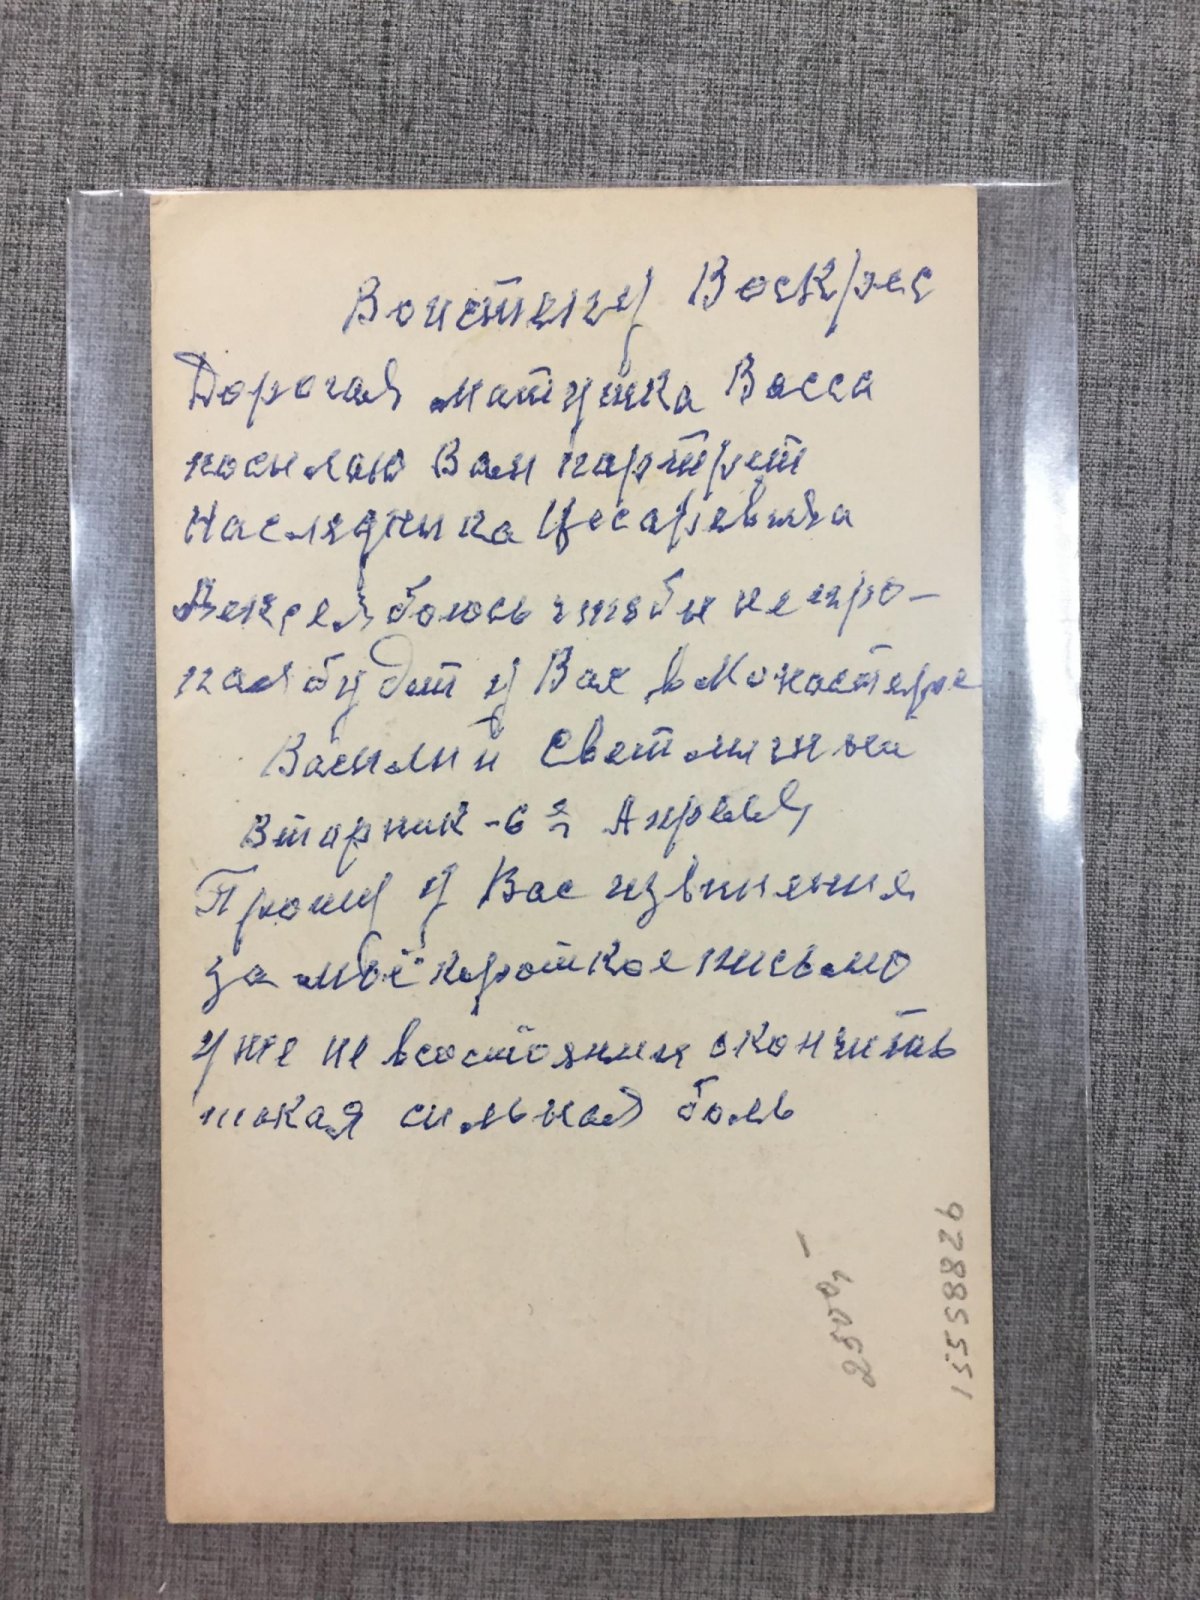 Воистену Воскрес
Дорогая матушка Васса
посылаю Вам портрет
Наследника Цесаревича
Алексея боюсь чтобы не про-
пал будет у Вас в Монастере
Василий
Вторник - 6 го Апреля
Прошу у Вас извинения
за моё кроткое письмо
уже не всостоянии окончить
такая сильная боль
2500,-
15558826